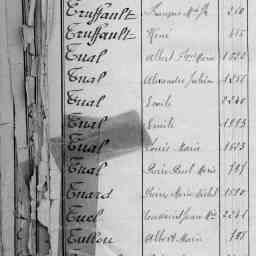 Truffault François Mie Jh 210
Truffault René 415
Tual Albert Frs Marie 1220
Tual Alexandre Julien 1251
Tual Emile 2240
Tual Emile 1993
Tual Louis Marie 1603
Tual Pierre Paul Marie 797
Tuard Pierre Marie Michel 1890
Tuel Jean Mie
Tullou Albert Marie 798